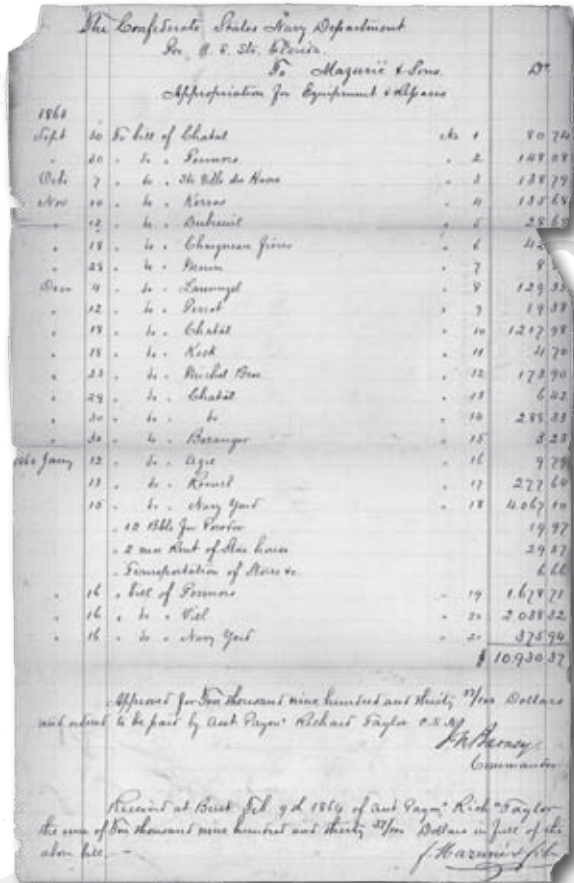 The Confederate States Navy Department
For C. S. Str. Florida
To Mazurié & Sons. Dr
Appropriation for Equipment & Repairs
1863
Sept 30 To bill of Chatal No 1 80 74
" 30 " do " Pennors " 2 148 08
Octo 7 " do " Ste Ville du Havre " 3 138 79
Nov 10 " do " Kerros " 4 135 68
" 12 " do " Dubreuil " 5 28 68
" 18 " do " frères " 6 42
" 28 " do " " 7 8
Decr 9 " do " " 8 129 35
" 12 " do " Perrot " 9 19 38
" 18 " do " Chatal " 10 1217 98
" 18 " do " Kock " 11 4 70
" 23 " do " Michel Bros " 12 173 90
" 29 " do " Chatal " 13 6 42
" 30 " do " do " 14 288 33
" 30 " do " Beranger " 15 3 23
1864 Jany 12 " do " " 16 9 79
" 13 " do " " 17 277 64
" 15 " do " Navy Yard " 18 4.067 10
" 12 Bbls for Powder 19 97
" 2 mos Rent of Store house 29 37
" Transportation of Stores &c 6 66
" 16 " bill of Pennors " 19 1.678 71
" 16 " do " " 20 2 038 32
" 16 " do " Navy Yard " 21 375 94
$ 10,930 37
Approved for Ten thousand nine hundred and thirty 37/100 Dollars
and to be paid by Asst Paymr Richard Taylor C.S.N.
J. N. Barney,
Commander
Received at Brest Feb 9d 1864 of Asst Paymr Richd Taylor
the sum of Ten thousand nine hundred and thirty 37/100 Dollars in full of the
above bill.
J. Mazurié & fils